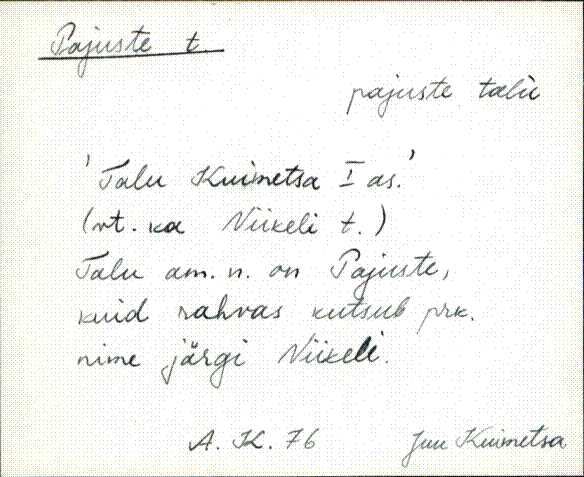 Pajuste t.
pajuste talu
'Talu Kuimetsa I as.'
(vt. ka Niikeli t.)
Talu am. n. on Pajuste,
kuid rahvas kutsub prk.
nime järgi Niikeli.
A. K. 76 Juu Kuimetsa